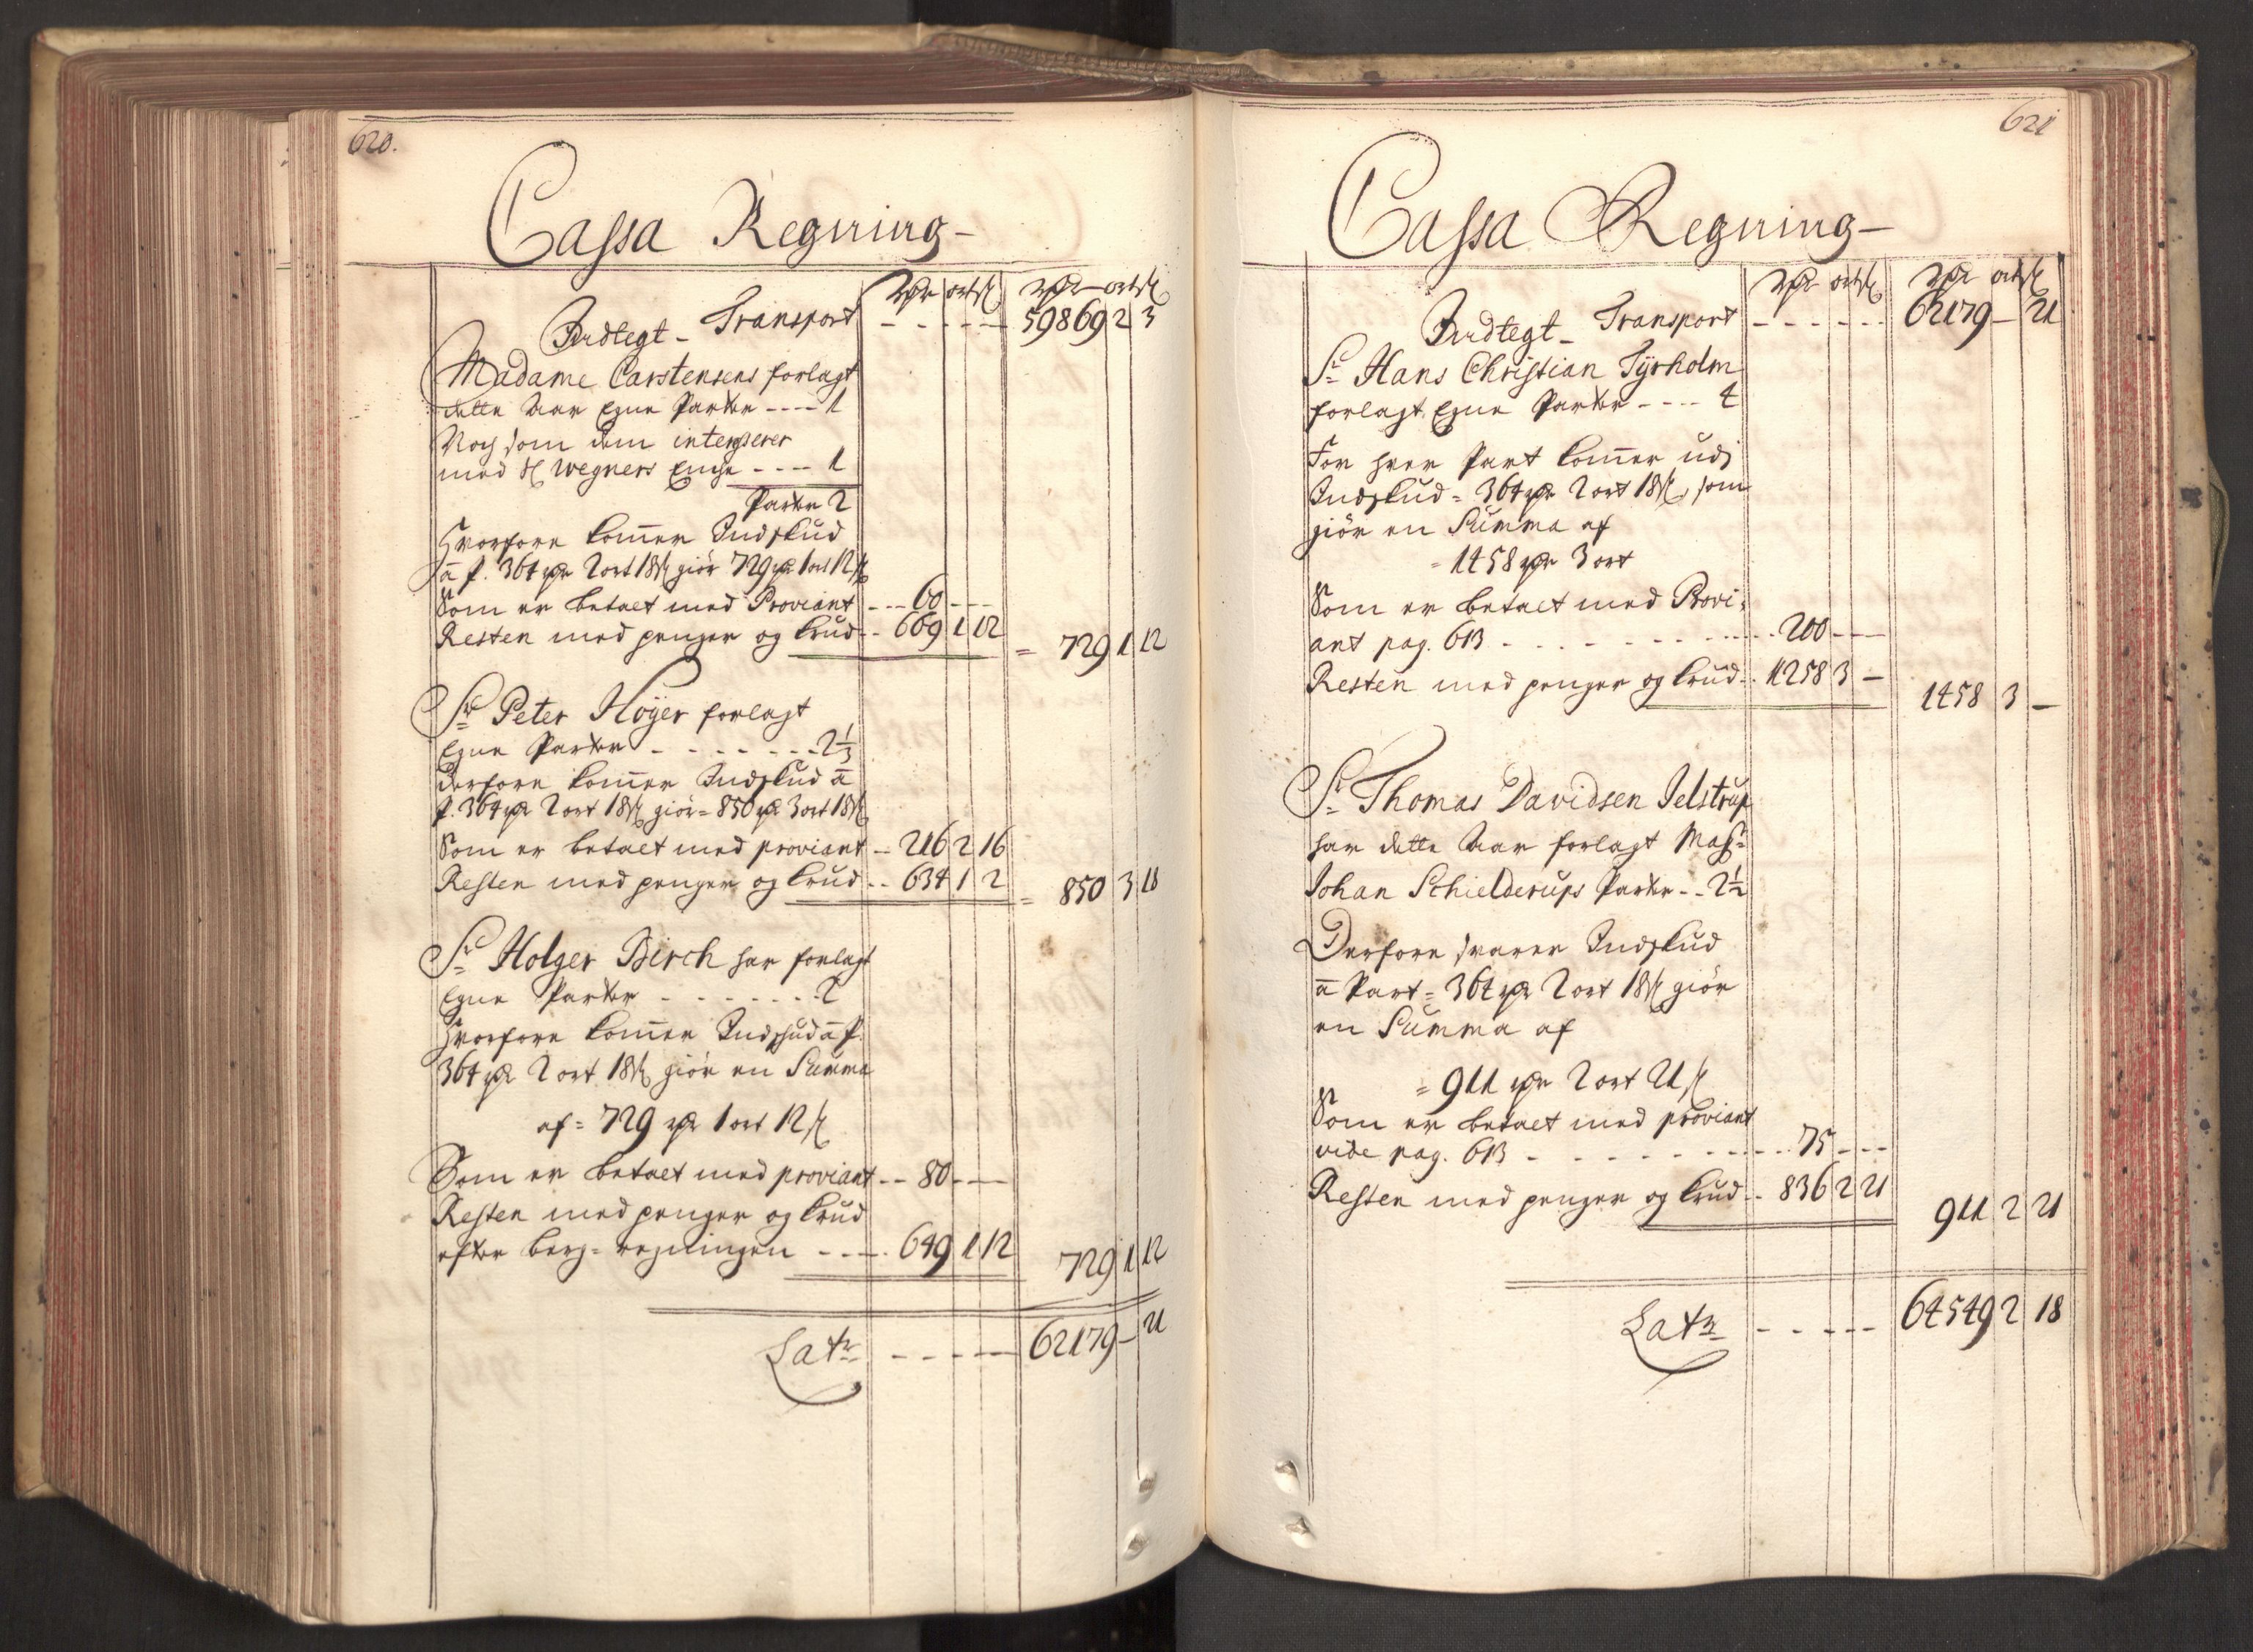 620.
Cassa Regning-
Rdr ort ß Rdr ort ß
Indtegt - Transport - - - - - 59869 2 3
Madame Carstensens forlagt
dette Aar Egne Parter - - - - 1
Noch som dem interesserer
med H Wegners Enche - - - - 1
Parter 2
Hvorfore kommer Indskud
a p. 364 rdr 2 ort 18 ß giör 729 rdr 1 ort 12 ß
Som er betalt med Proviant - - - 60 - - -
Resten med penger og krud - - 669 1 12 = 729 1 12
Sr. Peter Höyer forlagt
Egne Parter - - - - - - - 2 1/3
derfore kommer Indskud a
p. 364 rdr 2 ort 18 ß giör = 850 rdr 3 ort 18 ß
Som er betalt med proviant - 216 2 16
Resten med penger og krud - - 634 1 2 = 850 3 18
Sr. Holger Birch har forlagt
Egne Parter - - - - - - - 2
Hvorfore kommer Indschud a p.
364 rdr 2 ort 18 ß giör en Summa
af = 729 rdr 1 ort 12 ß
Som er betalt med proviant - - 80 - - -
Resten med penger og krud
efter berg = regningen - - - - 649 1 12 729 1 12
Latr. - - - - - 62179 - 21
621
Cassa Regning-
Rdr ort ß Rdr ort ß
Indtegt - Transport - - - - - - 62179 - 21
Sr. Hans Christian Tyrholm
forlagt Egne Parter - - - - 4
For hver Part kommer udj
Indskud = 364 rdr 2 ort 18 ß, som
giör en Summa af
= 1458 rdr 3 ort
Som er betalt med Provi=
ant pag. 613 - - - - - - - - - 200 - - -
Resten med penger og krud - - 1258 3 - 1458 3 -
Sr. Thomas Davidsen Jelstrup
har dette Aar forlagt Mass:
Johan Schielderups Parter - - 2 1/2
Derfore svarer Indskud
a Part = 364 rdr 2 ort 18 ß giör
en Summa af
= 911 rdr 2 ort 21 ß
Som er betalt med proviant
vide pag. 613 - - - - - - - - - 75 - - -
Resten med penger og krud - - 836 2 21 911 2 21
Latr. - - - - - 64549 2 18